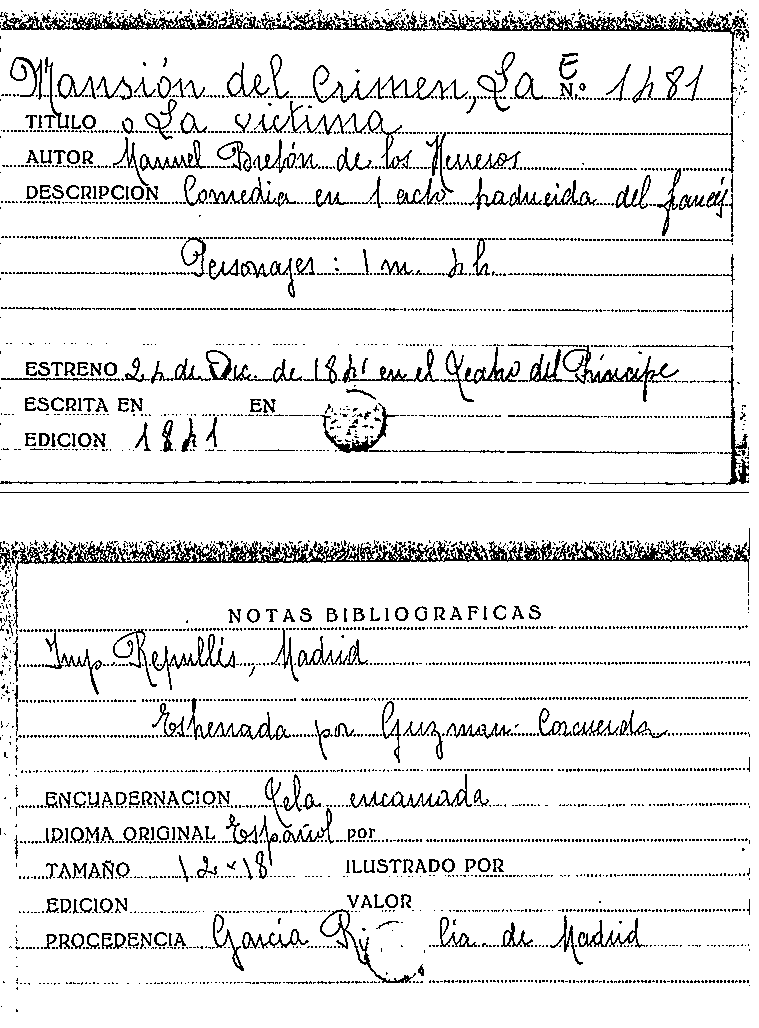 Mansión del Crimen, La E N.º 1481
TITULO o La victima
AUTOR Manuel Bretón de los Herreros
DESCRIPCION Comedia en 1 acto traducida del francés
Personajes: 1 m. 4 h.
ESTRENO 24 de Dic. de 1841 en el Teatro del Príncipe
ESCRITA EN EN
EDICION 1841
NOTAS BIBLIOGRAFICAS
Imp. Repullés, Madrid
Estrenada por Guzman - Corcuerda
ENCUADERNACION Tela encarnada
IDIOMA ORIGINAL Español por
TAMAÑO 12 x 18 ILUSTRADO POR
EDICION VALOR
PROCEDENCIA García de Madrid